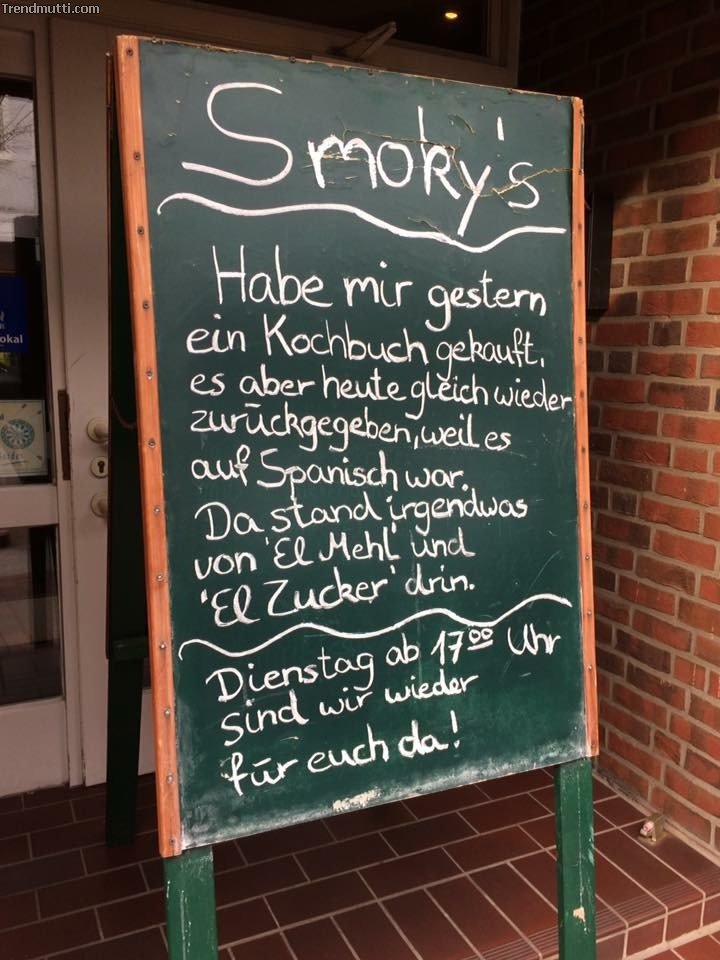 Trendmutti.com
Smoky's
Habe mir gestern
ein Kochbuch gekauft,
es aber heute gleich wieder
zurückgegeben, weil es
auf Spanisch war.
Da stand irgendwas
von 'El Mehl' und
'El Zucker' drin.
Dienstag ab 17⁰⁰ Uhr
sind wir wieder
für euch da!
okal